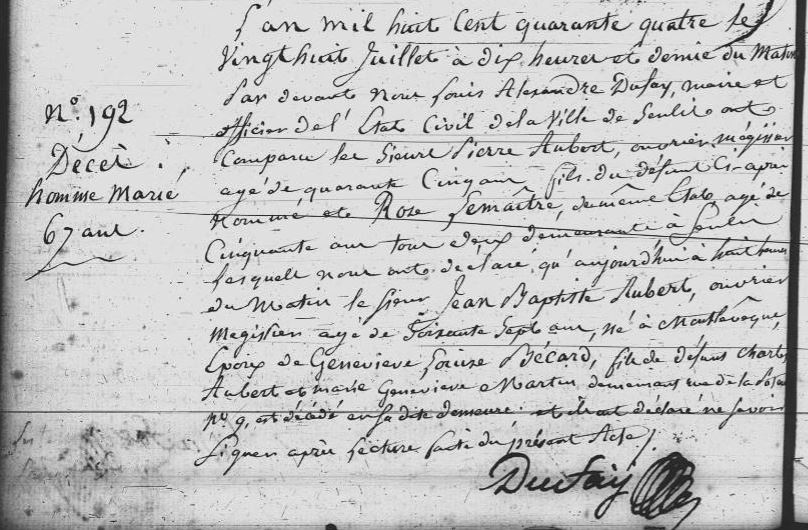 N.° 192
Décès
homme Marié
67 ans.
L'an mil huit Cent quarante quatre le
Vingt huit Juillet à dix heures et demie du Matin
Par devant nous Louis Alexandre Dufay, maire et
officier de l'Etat Civil de la Ville de Senlis ont
Comparu les Sieurs Pierre Aubert, ouvrier mégissier
agé de quarante Cinq ans, fils du défunt Ci-après
nommé et Rose Lemaître, de même Etat, agé de
Cinquante ans tous deux demeurants à Senlis
Lesquels nous ont déclaré qu'aujourd'hui à huit heures
du Matin le sieur Jean Baptiste Aubert, ouvrier
Megissier agé de Soixante Sept ans, né à Montlevêque,
Epoux de Genevieve Louise Bécard, fils de défunt Charles
Aubert et marie Genevieve Martin demeurant rue de la
N.° 9, est décédé en sa dite demeure et ils ont déclaré ne savoir
Signer après Lecture faite du présent Acte /.
Dufay